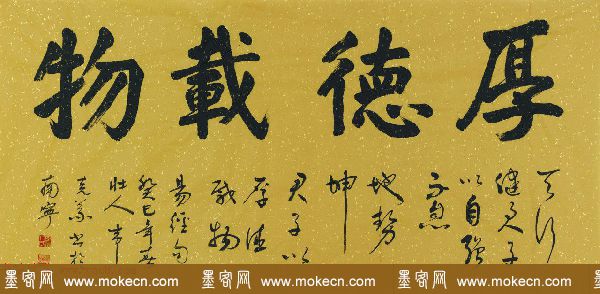 厚德載物
天行
健君子
以自强
不息
地勢
坤
君子以
厚德
載物
易經句
癸巳年春
壮人
书於
南寧
墨客网 www.mokecn.com 墨客网 www.mokecn.com 墨客网